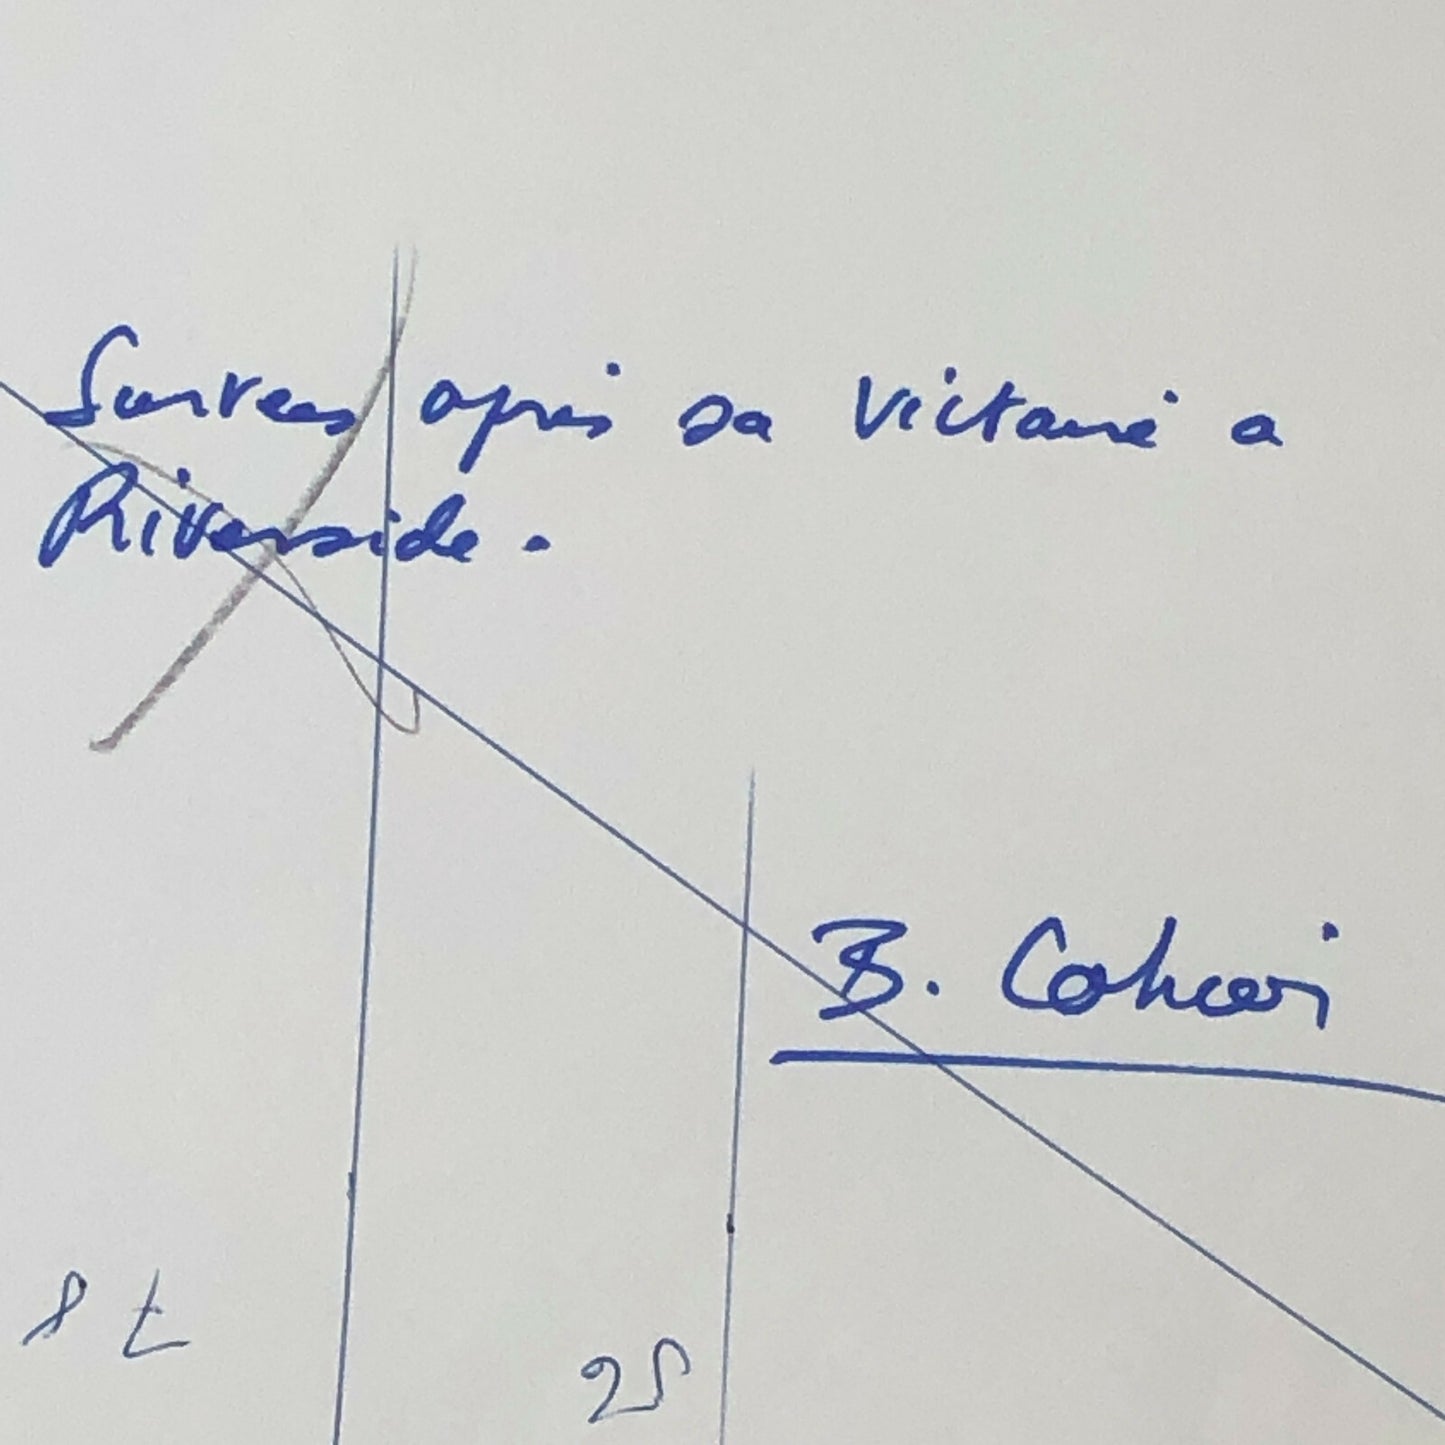 Surtees après sa victoire a
Riverside.
B. Cahier
78
25